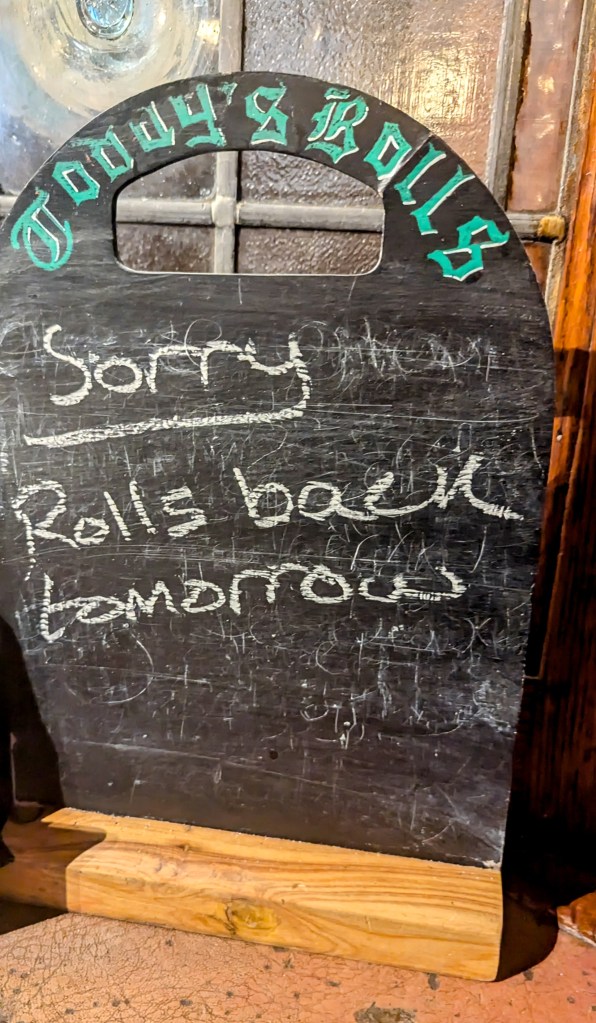 Toddy's Rolls
Sorry
Rolls back
tomorrow